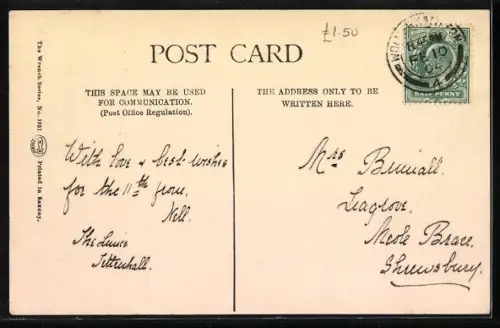 £1.50
POST CARD
THIS SPACE MAY BE USED
FOR COMMUNICATION.
(Post Office Regulation).
THE ADDRESS ONLY TO BE
WRITTEN HERE.
HALF PENNY
The Wrench Series, No. 1921
Printed in Saxony.
With love & best wishes
for the 11th from,
Nell.
The
Tettenhall.
Mrs
Meole Brace,
Shrewsbury.